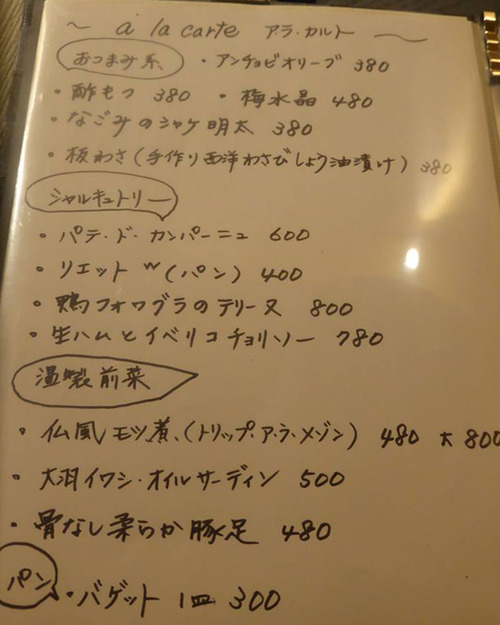 ~ à la carte アラ・カルト ~
おつまみ系 ・アンチョビオリーブ 380
・酢もつ 380 ・梅水晶 480
・なごみのシャケ明太 380
・板わさ(手作り西洋わさびしょう油漬け) 380
シャルキュトリー
・パテ・ド・カンパーニュ 600
・リエット w(パン) 400
・鴨フォワグラのテリーヌ 800
・生ハムとイベリコチョリソー 780
温製前菜
・仏風モツ煮、(トリップ・ア・ラ・メゾン) 480 大800
・大羽イワシ・オイルサーディン 500
・骨なし柔らか豚足 480
パン ・バゲット 1皿 300